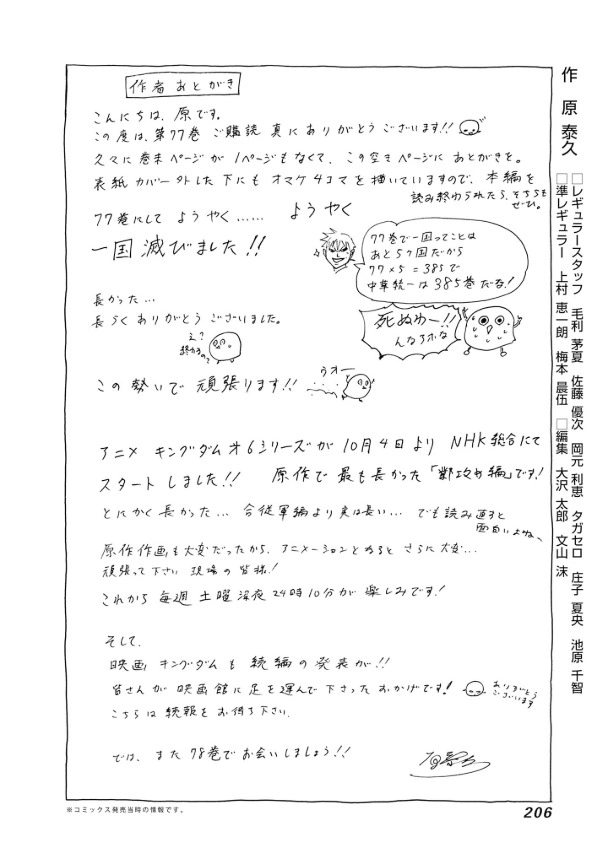 作者 あとがき
こんにちは、原です。
この度は、第77巻 ご購読 真に ありがとう ございます!!
久々に巻末ページが 1ページもなくて、この空きページに あとがきを。
表紙カバー外した下にも オマケ4コマを 描いていますので、本編を
読み終わられたら、そちらも
ぜひ。
77巻にして ようやく…… ようやく
一国滅びました!!
77巻で一国ってことは
あと5ヶ国だから
77×5=385で
中華統一は385巻だな!
死ぬわー!!
んなアホな
長かった…
長らく ありがとう ございました。
え?
終わるの?
この勢いで 頑張ります!!
うオー
アニメ キングダム オ6シリーズが 10月4日より NHK総合にて
スタート しました!! 原作で 最も長かった「鄴攻め編」です!
とにかく長かった… 合従軍編より 実は長い… でも読み返すと
面白いよね、
原作作画も大変だったから、アニメーションとなると さらに大変…
頑張って下さい 現場の 皆様!
これから 毎週 土曜深夜24時10分が 楽しみです!
そして、
映画 キングダム も 続編の 発表が!!
皆さんが 映画館に 足を運んで 下さった おかげです!
ありがとう
ございます
こちらは 続報を お待ち下さい。
では、また 78巻で お会いしましょう!!
作 原 泰久
□レギュラースタッフ 毛利 茅夏 佐藤 優次 岡元 利恵 タガセロ 庄子 夏央 池原 千智
□準レギュラー 上村 恵一朗 梅本 晨伍 □編集 大沢 太郎 文山 沫
※コミックス発売当時の情報です。
206